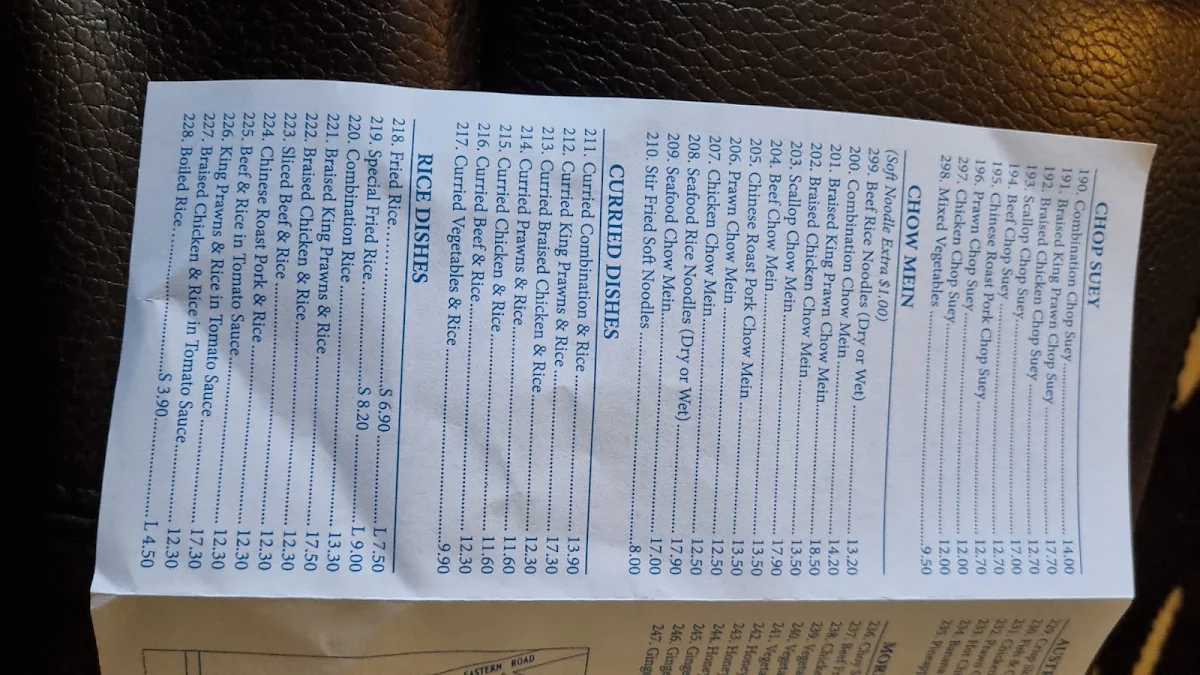 CHOP SUEY
190. Combination Chop Suey 14.00
191. Braised King Prawn Chop Suey 17.70
192. Braised Chicken Chop Suey 12.70
193. Scallop Chop Suey 17.00
194. Beef Chop Suey 12.70
195. Chinese Roast Pork Chop Suey 12.70
196. Prawn Chop Suey 12.00
297. Chicken Chop Suey 12.00
298. Mixed Vegetables 9.50
CHOW MEIN
(Soft Noodle Extra $1.00)
299. Beef Rice Noodles (Dry or Wet) 13.20
200. Combination Chow Mein 14.20
201. Braised King Prawn Chow Mein 18.50
202. Braised Chicken Chow Mein 13.50
203. Scallop Chow Mein 17.90
204. Beef Chow Mein 13.50
205. Chinese Roast Pork Chow Mein 13.50
206. Prawn Chow Mein 12.50
207. Chicken Chow Mein 12.50
208. Seafood Rice Noodles (Dry or Wet) 17.90
209. Seafood Chow Mein 17.00
210. Stir Fried Soft Noodles 8.00
CURRIED DISHES
211. Curried Combination & Rice 13.90
212. Curried King Prawns & Rice 17.30
213. Curried Braised Chicken & Rice 12.30
214. Curried Prawns & Rice 11.60
215. Curried Chicken & Rice 11.60
216. Curried Beef & Rice 12.30
217. Curried Vegetables & Rice 9.90
RICE DISHES
218. Fried Rice S 6.90 L 7.50
219. Special Fried Rice S 8.20 L 9.00
220. Combination Rice 13.30
221. Braised King Prawns & Rice 17.50
222. Braised Chicken & Rice 12.30
223. Sliced Beef & Rice 12.30
224. Chinese Roast Pork & Rice 12.30
225. Beef & Rice in Tomato Sauce 12.30
226. King Prawns & Rice in Tomato Sauce 17.30
227. Braised Chicken & Rice in Tomato Sauce 12.30
228. Boiled Rice S 3.90 L 4.50
AUST
231.
232.
233. Prawn
234. Banana
235.
MOR
236.
237. Beef
238. Chicke
239. Vegeta
240. Vegeta
241. Vegeta
242. Honey
243. Honey
244. Honey
245. Ginge
246. Ginge
247. Ginge
EASTERN ROAD